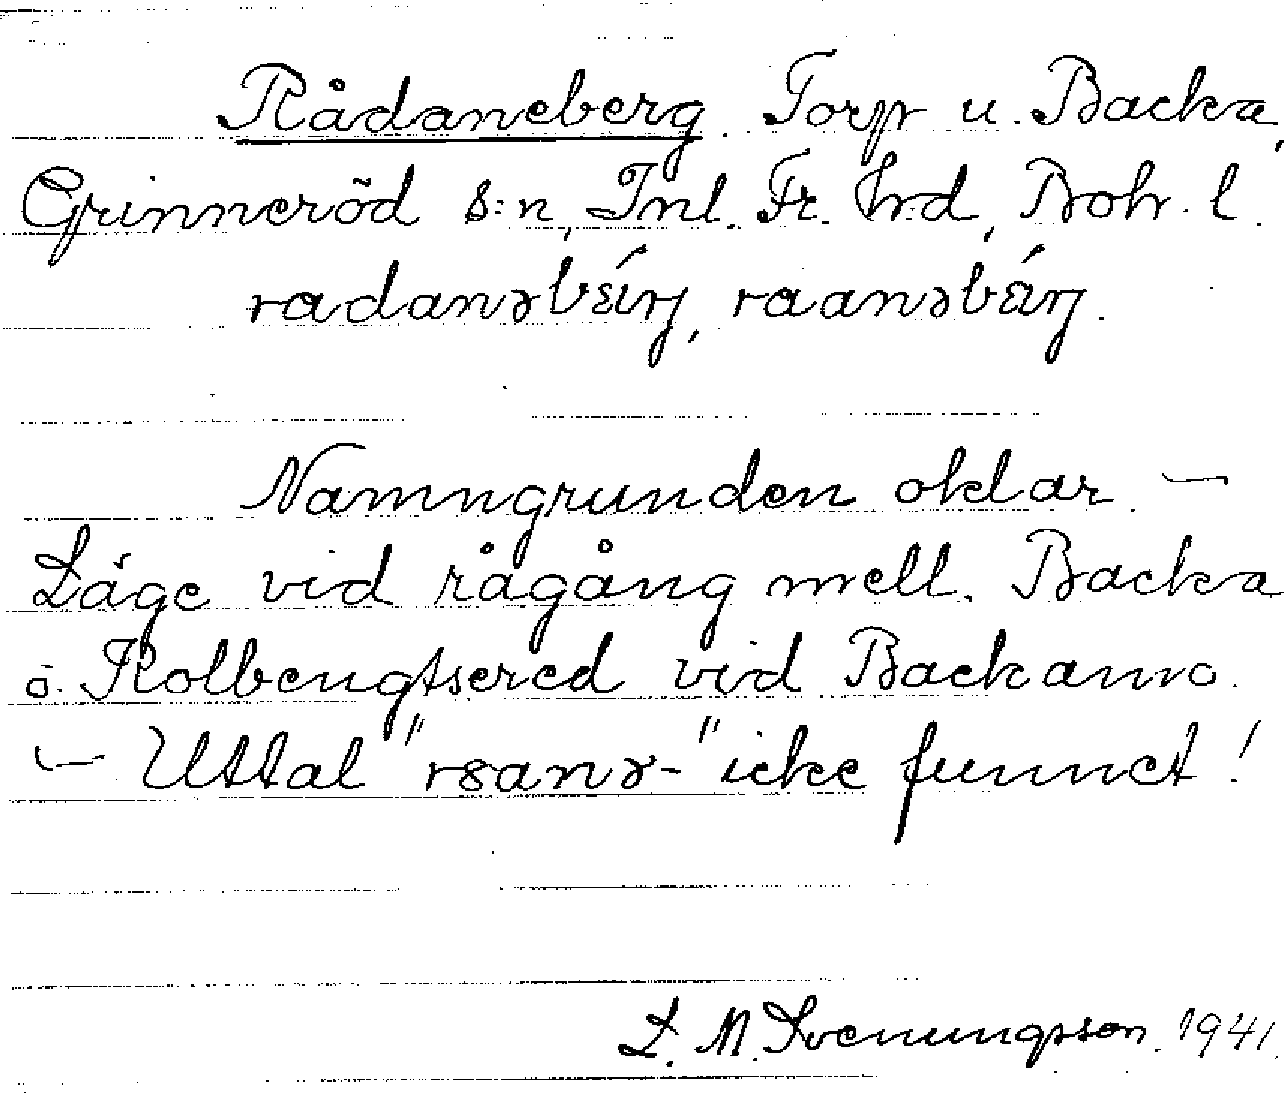 Rådaneberg. Torp u. Backa,
Grinneröd s:n, Inl. Fr. hd, Boh. l.
radanəbɛ́rj, raanəbɛ́rj.
Namngrunden oklar –
Läge vid rågång mell. Backa
o. Kolbengtsered vid Backamo.
– Uttal "rɑanə-" icke funnet!
L. M. Svenungsson. 1941.